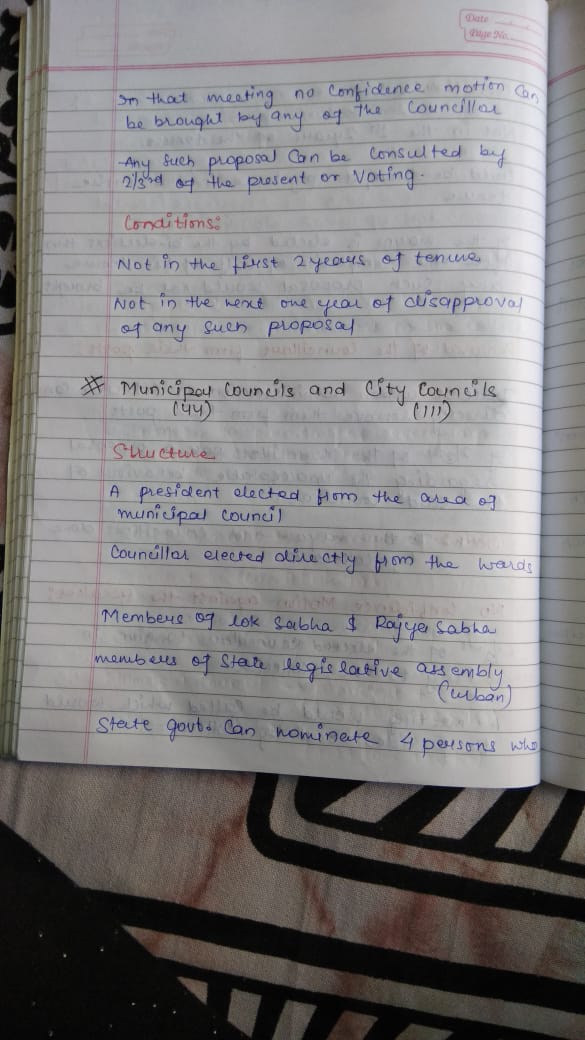 Date
Page No.
In that meeting no confidence motion can
be brought by any of the Councillor
Any such proposal can be consulted by
2/3rd of the present or voting.
Conditions:
Not in the first 2 years of tenure
Not in the next one year of disapproval
of any such proposal
# Municipal Councils and City Councils
(44) (111)
Structure
A president elected from the area of
municipal council
Councillor elected directly from the wards
Members of lok sabha & Rajya Sabha
members of State legislative assembly
(urban)
State govt. can nominate 4 persons who